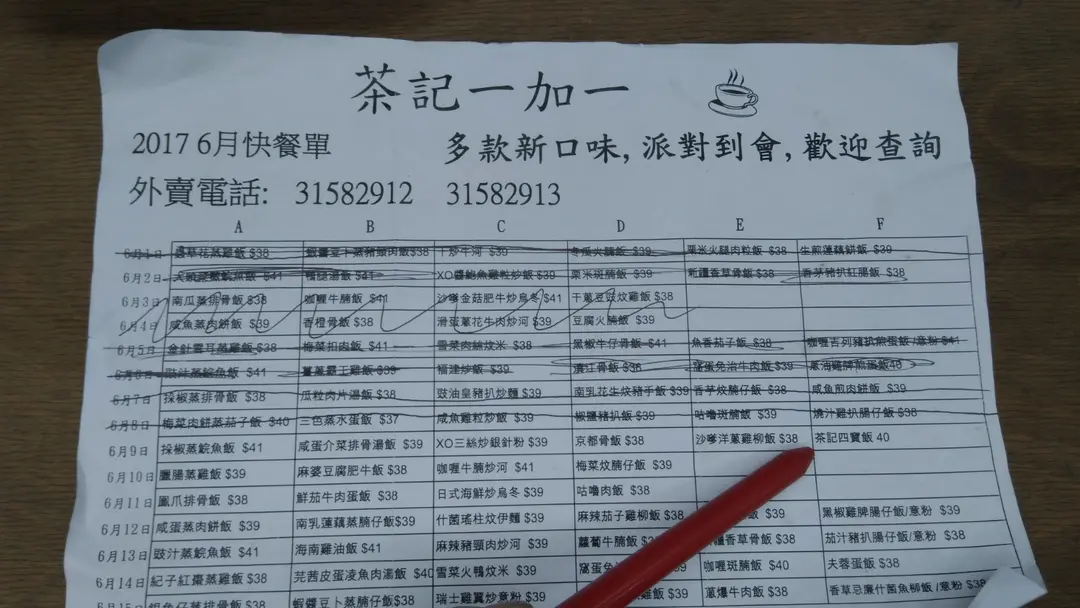 茶記一加一
2017 6月快餐單 多款新口味, 派對到會, 歡迎查詢
外賣電話: 31582912 31582913
A B C D E F
6月1日 蟲草花蒸雞飯 $38 蝦醬豆卜蒸豬頸肉飯$38 干炒牛河 $39 冬瓜火腩飯 $39 粟米火腿肉粒飯 $38 生煎蓮藕餅飯 $39
6月2日 $41 鴨腿湯飯 $41 XO醬鮑魚雞粒炒飯 $39 粟米斑腩飯 $39 新疆香草骨飯 $38 香茅豬扒紅腸飯 $38
6月3日 南瓜蒸排骨飯 $38 咖喱牛腩飯 $41 沙嗲金菇肥牛炒烏冬 $41 干蔥豆豉炆雞飯 $38
6月4日 咸魚蒸肉餅飯 $39 香橙骨飯 $38 滑蛋蔥花牛肉炒河 $39 豆腐火腩飯 $39
6月5日 金針雲耳蒸雞飯 $38 梅菜扣肉飯 $41 雪菜肉絲炆米 $38 黑椒牛仔骨飯 $41 魚香茄子飯 $38 咖喱吉列豬扒煎蛋飯 /意粉 $41
6月6日 豉汁蒸鯇魚飯 $41 薑蔥霸王雞飯 $39 福建炒飯 $39 鎮江骨飯 $38 窩蛋免治牛肉飯 $39 蔥油雞脾煎蛋飯40
6月7日 採椒蒸排骨飯 $38 瓜粒肉片湯飯 $38 豉油皇豬扒炒麵 $39 南乳花生炆豬手飯 $39 香芋炆腩仔飯 $38 咸魚煎肉餅飯 $39
6月8日 梅菜肉餅蒸茄子飯 $40 三色蒸水蛋飯 $37 咸魚雞粒炒飯 $39 椒鹽豬扒飯 $39 咕嚕斑腩飯 $39 燒汁雞扒腸仔飯 $38
6月9日 採椒蒸鯇魚飯 $41 咸蛋介菜排骨湯飯 $39 XO三絲炒銀針粉 $39 京都骨飯 $38 沙嗲洋蔥雞柳飯 $38 茶記四寶飯 40
6月10日 臘腸蒸雞飯 $39 麻婆豆腐肥牛飯 $38 咖喱牛腩炒河 $41 梅菜炆腩仔飯 $39
6月11日 鳳爪排骨飯 $38 鮮茄牛肉蛋飯 $38 日式海鮮炒烏冬 $39 咕嚕肉飯 $38
6月12日 咸蛋蒸肉餅飯 $39 南乳蓮藕蒸腩仔飯$39 什菌瑤柱炆伊麵 $39 麻辣茄子雞柳飯 $38 飯 $39 黑椒雞脾腸仔飯/意粉 $39
6月13日 豉汁蒸鯇魚飯 $41 海南雞油飯 $41 麻辣豬頸肉炒河 $39 蘿蔔牛腩飯 香草骨飯 $38 茄汁豬扒腸仔飯/意粉 $38
6月14日 紀子紅棗蒸雞飯 $38 芫茜皮蛋凌魚肉湯飯 $40 雪菜火鴨炆米 $39 窩蛋免 咖喱斑腩飯 $40 夫蓉蛋飯 $38
6月15日 銀魚仔蒸排骨飯 $38 蝦醬豆卜蒸腩仔飯 $38 瑞士雞翼炒意粉 $39 雞飯 $39 蔥爆牛肉飯 $38 香草忌廉什菌魚柳飯 /意粉 $38